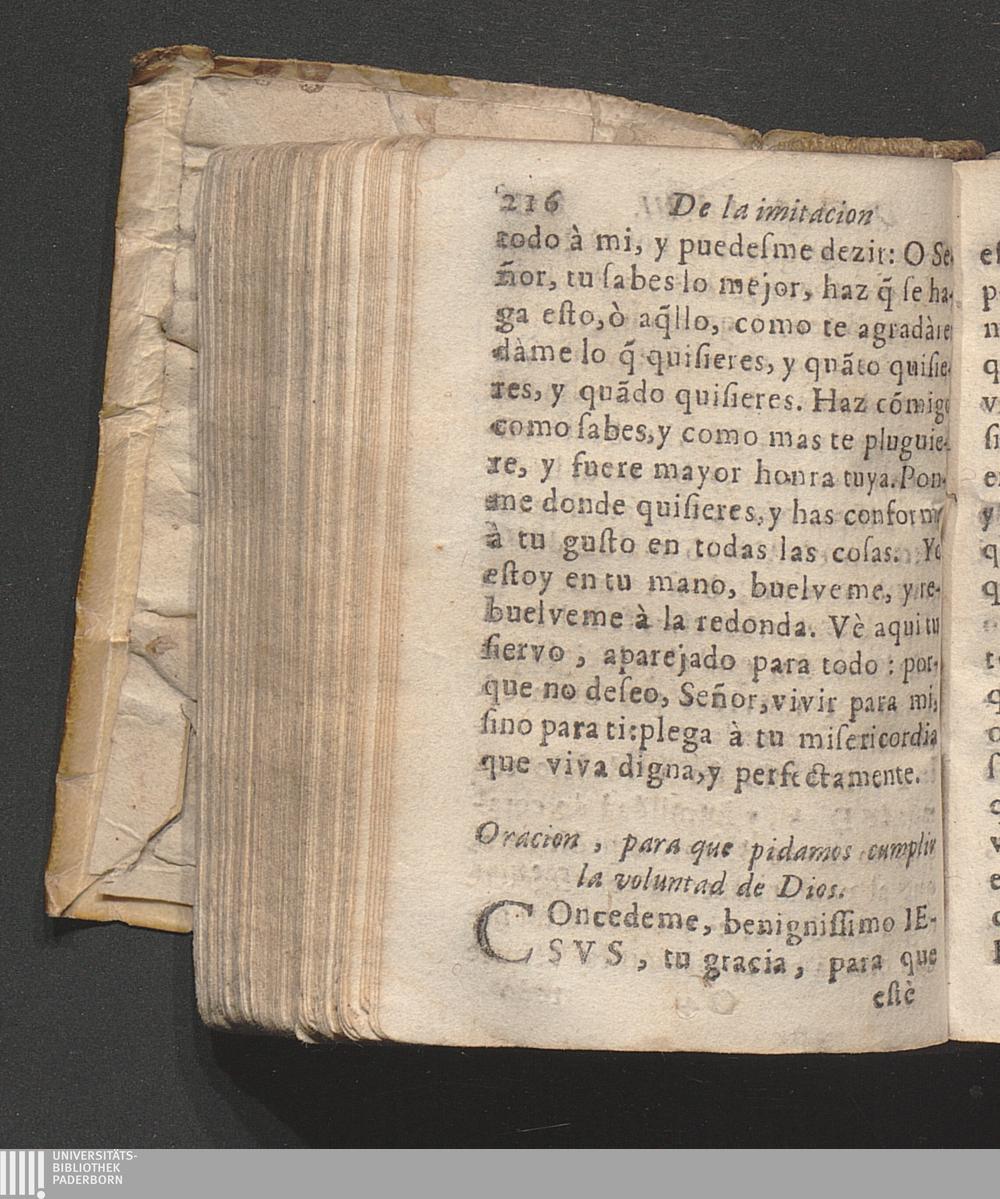 216 De la imitacion
todo à mi, y puedeſme dezir: O Se-
ñor, tu ſabes lo mejor, haz q̃ ſe ha-
ga eſto, ò aq̃llo, como te agradàre
dàme lo q̃ quiſieres, y quãto quiſie-
res, y quãdo quiſieres. Haz cõmigo
como ſabes, y como mas te pluguie-
re, y fuere mayor honra tuya. Pon-
me donde quiſieres, y has conforme
à tu guſto en todas las coſas. Yo
eſtoy en tu mano, buelveme, y re-
buelveme à la redonda. Vè aqui tu
ſiervo, aparejado para todo: por-
que no deſeo, Señor, vivir para mi,
ſino para ti: plega à tu miſericordia
que viva digna, y perfectamente.
Oracion, para que pidamos cumplir
la voluntad de Dios.
COncedeme, benigniſſimo IE-
SVS, tu gracia, para que
eſtè
UNIVERSITÄTS-
BIBLIOTHEK
PADERBORN